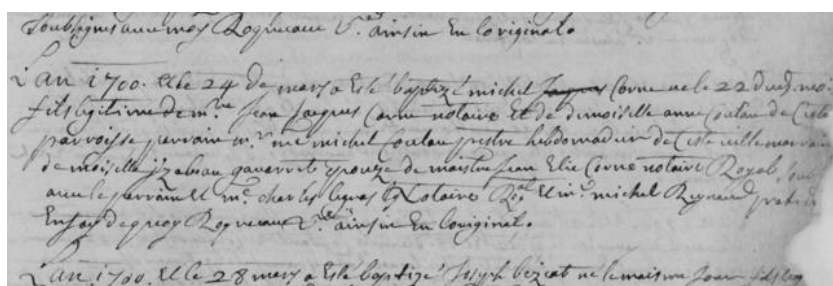 soubsignes avec moy Roqueaux V.re ainsin En Loriginal.
L'an 1700. et le 24 de mars a Esté baptizé michel Jaques Corne ne le 22 dud. mois
fils legitime de m.re Jean Jacques Corne notaire Et de demoiselle anne Coulau de Ceste
parroisse parrain m.r m.e michel Coulau prestre hebdomadier de Ceste ville marraine
de moiselle yzabeau gavarrete Epouze de maistre Jean Elie Corne notaire Royal,
avec le parrain Et m.e charles legras Notaire Roy.al Et m.e michel Reynaud
En foy de quoy Roqueaux V.re ainsin En Loriginal.
L'an 1700. Et le 28 mars a Esté baptizé Joseph bezeat ne le maisme Jour fils